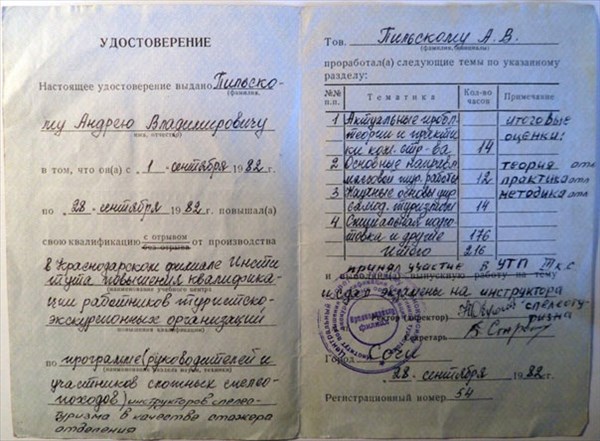 УДОСТОВЕРЕНИЕ
Настоящее удостоверение выдано Пильско-
(фамилия,
му Андрею Владимировичу
имя, отчество)
в том, что он(а) с 1 сентября 1982 г.
по 28 сентября 1982 г. повышал(а)
свою квалификацию с отрывом
без отрыва от производства
в Краснодарском филиале Инсти
тута повышения квалифика-
(наименование учебного центра
ции работников туристско-
экскурсионных организаций
повышения квалификации)
по программе (руководителей и
участников сложных спелео-
походов) инструкторов спелео-
туризма в качестве стажора
отделения
Тов. Пильскому А. В.
(фамилия, инициалы)
проработал(а) следующие темы по указанному
разделу:
№№ п.п. Тематика Кол-во часов Примечание
1 Актуальные пробл
теории и практи
ки ком. стр-ва 14
итоговые
оценки:
2 Основные направл
массовой тур. работы 12
теория отл
практика отл
3 Научные основы тур
самод. туризма 14
методика отл
4 Специальная подго
товка и другие 176
Итого 216
принял участие в УТП
и выполнил(а) выпускную работу на тему
и сдал экзамены на инструктора
спелеоту-
ризма
Ректор (директор)
Секретарь
Город Сочи
28 сентября 1982 г.
Регистрационный номер 54